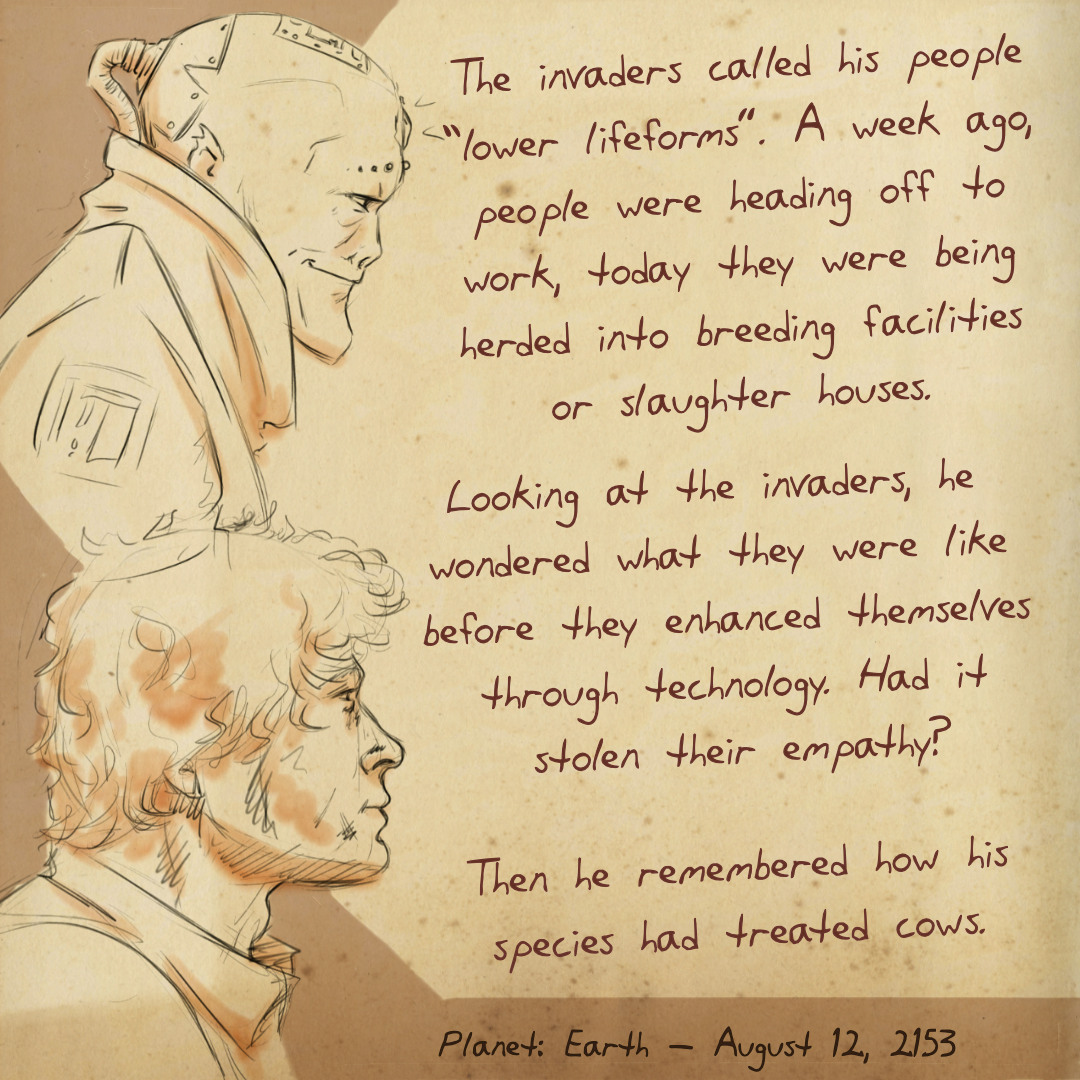 The invaders called his people
"lower lifeforms". A week ago,
people were heading off to
work, today they were being
herded into breeding facilities
or slaughter houses.
Looking at the invaders, he
wondered what they were like
before they enhanced themselves
through technology. Had it
stolen their empathy?
Then he remembered how his
species had treated cows.
Planet: Earth – August 12, 2153